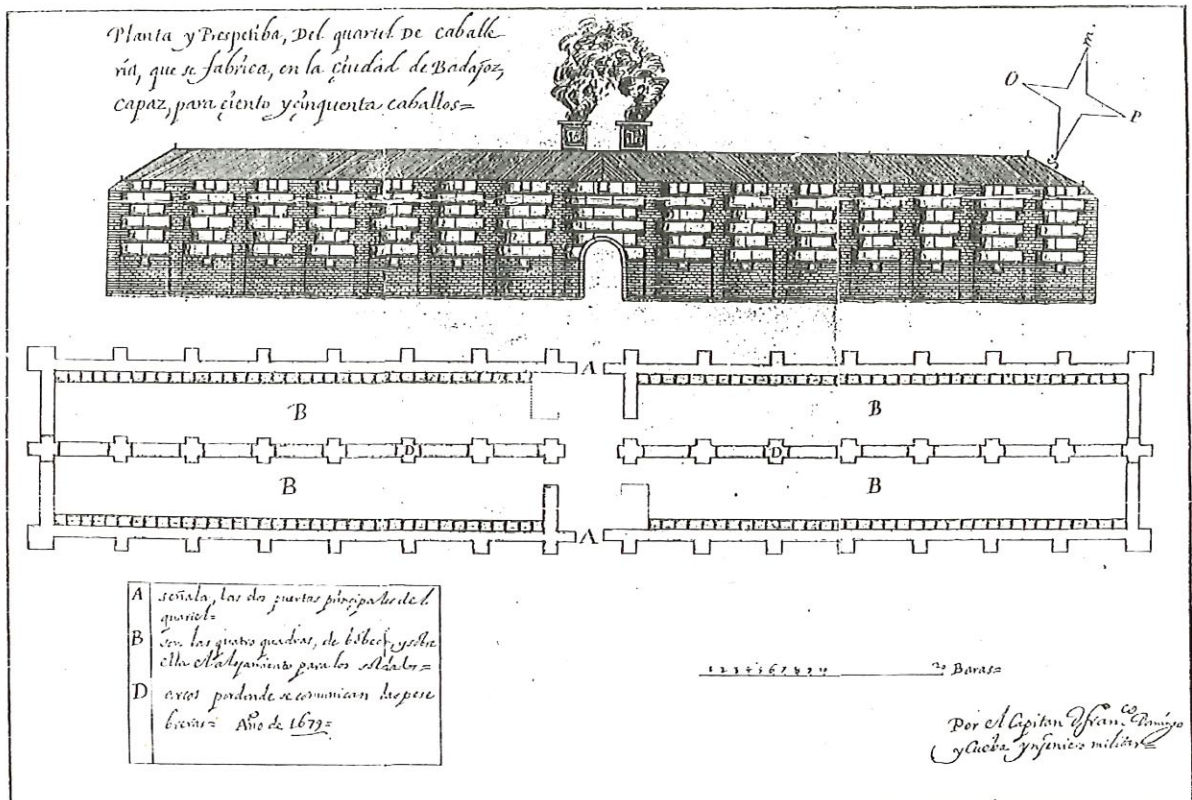 Planta y Prespetiba, Del quartel De Caballe
ria, que se fabrica, en la çiudad de Badajoz,
Capaz, para çiento y çinquenta caballos=
m.
O
P
S
A
B
B
D
D
B
B
A
A señala, las dos puertas prinçipales del
quartel=
B son las quatro quadras, de bobeda, y sobre
ella el alojamiento para los soldados=
D arcos por donde se comunican las pese
breras= Año de 1679=
1 2 3 4 5 6 7 8 9 10 20 Baras=
Por el Capitan D fran.co
y Cueba ynjeniero militar=